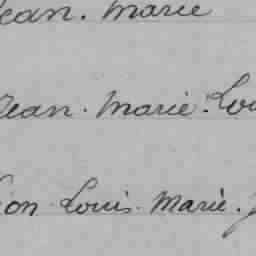 Jean. Marie
Jean. Marie. Lou
Léon Louis. Marie. J